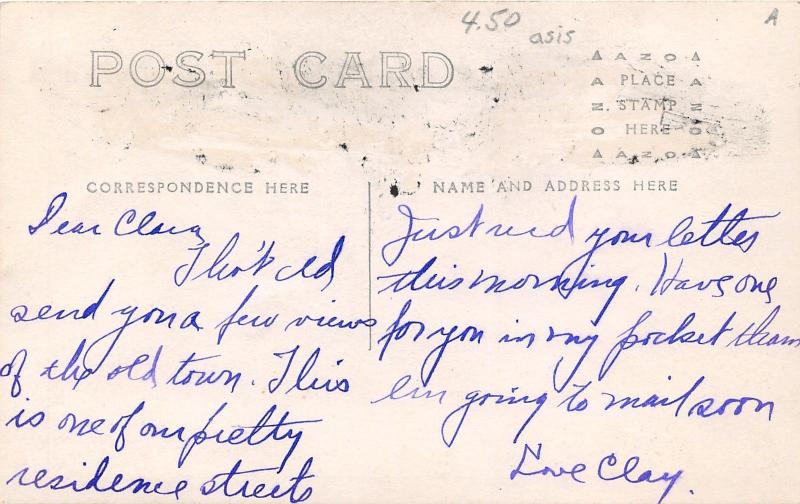 4.50
asis
A
POST CARD
AZO
PLACE
STAMP
HERE
AZO
CORRESPONDENCE HERE
NAME AND ADDRESS HERE
Dear Clara,
Tho't I'd
send you a few views
of the old town. This
is one of our pretty
residence streets
Just rec'd your letter
this morning. Have one
for you in my pocket tham
I'm going to mail soon
Love Clay.